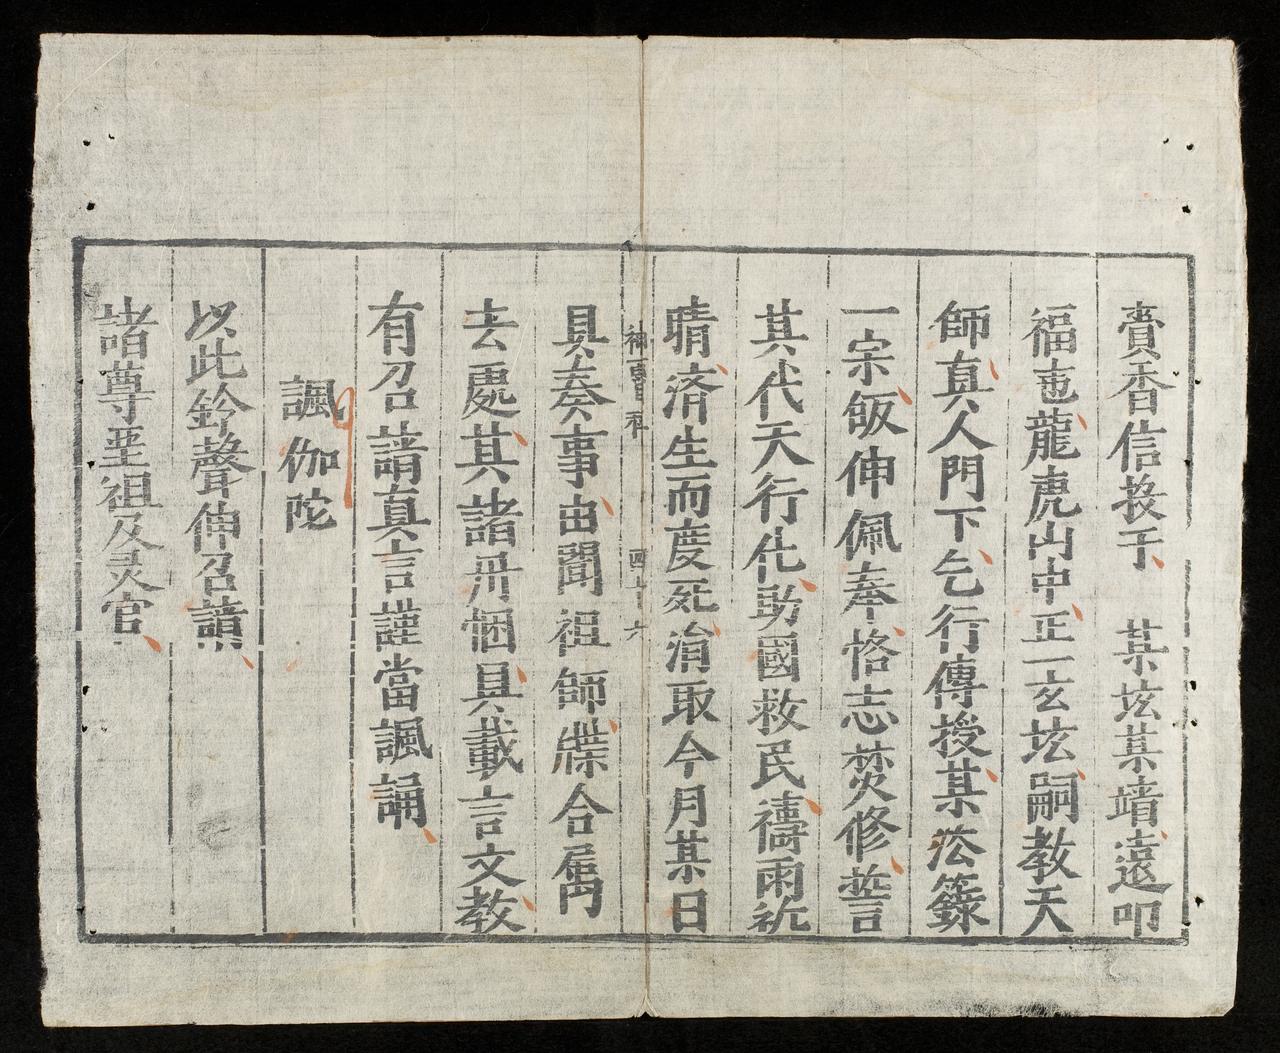 賷香信投于　某坛某墙遠叩
福𠃔龍虎山中正一玄坛嗣教天
師真人門下乞行傳授某㳒籙
一宗皈伸佩奉恪志焚修誓
其代天行化助國救民禱雨祈
晴济生而度死涓取今月某日
具奏事由聞祖師牒合属
去䖏其諸冊悃具載言文教
有召請真言謹當諷誦
諷伽陀
以此鈴聲伸召請
諸尊聖祖及灵官
四十六